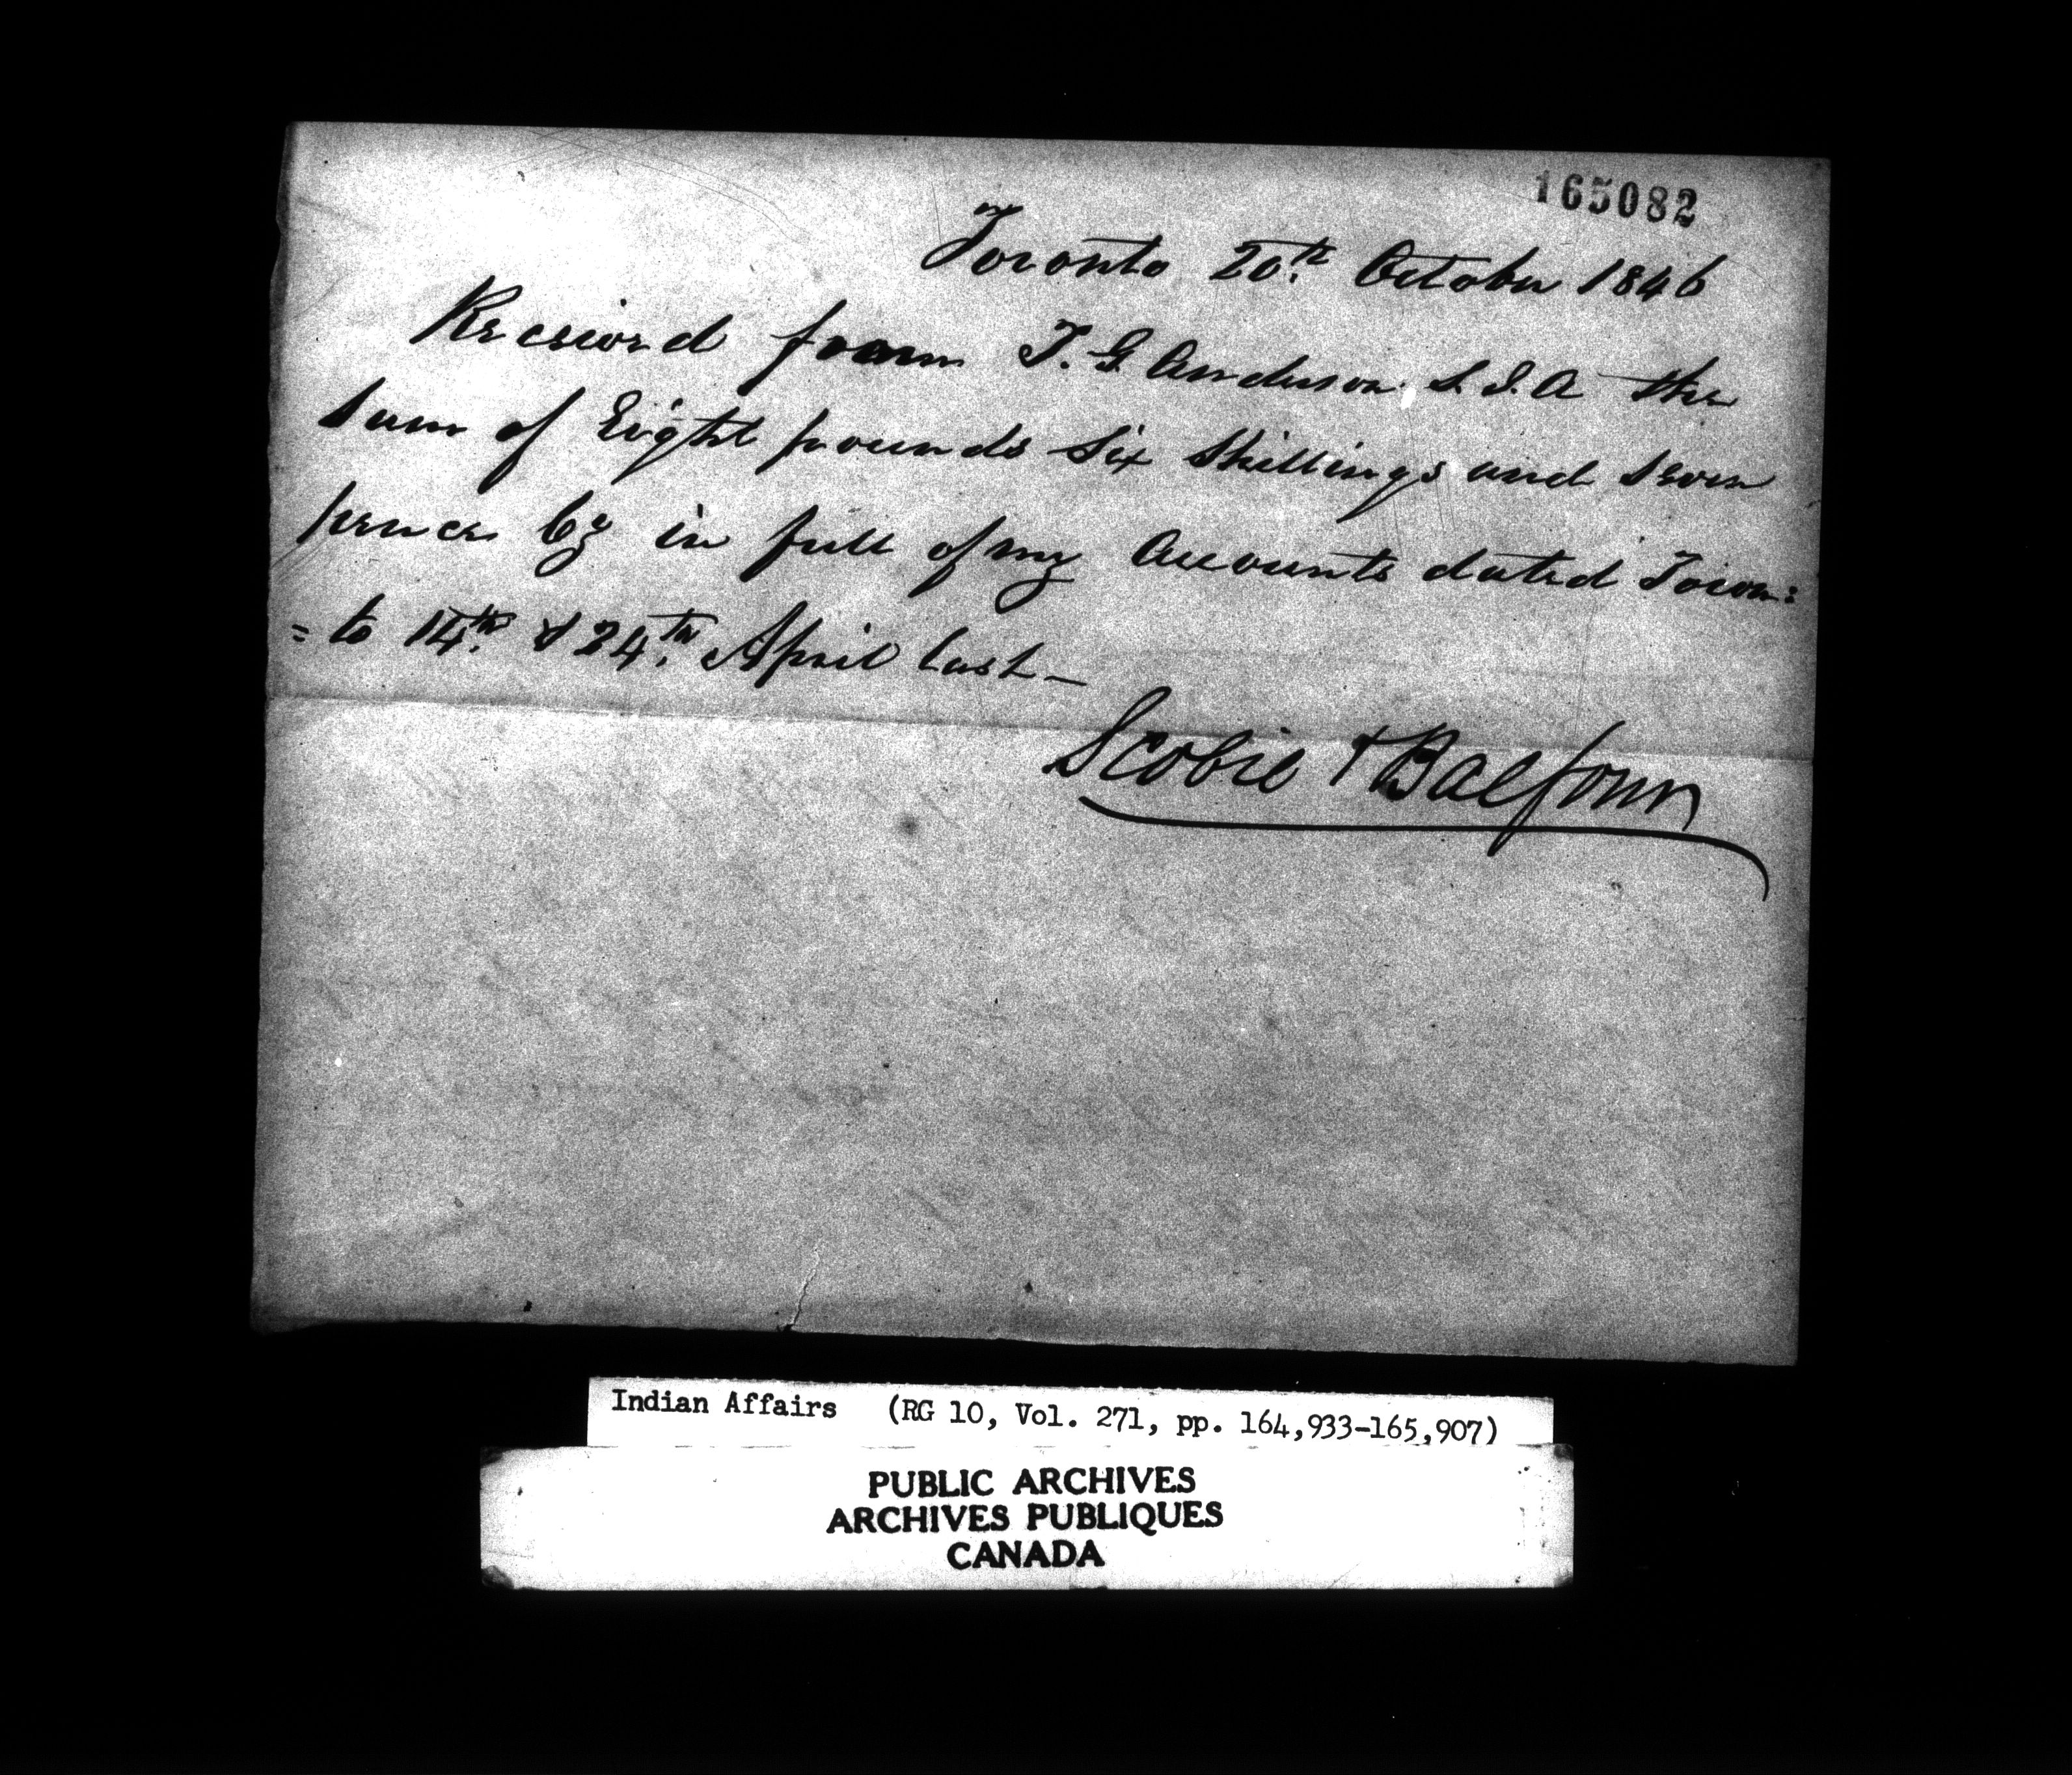 165082
Toronto 20th October 1846
Received from T. G Anderson S. I. A the
Sum of Eight pounds Six Shillings and Seven
pence Cy in full of my Accounts dated Toron:
= to 14th & 24th April last_
Scobie & Balfour
Indian Affairs (RG 10, Vol. 271, pp. 164,933-165,907)
PUBLIC ARCHIVES
ARCHIVES PUBLIQUES
CANADA